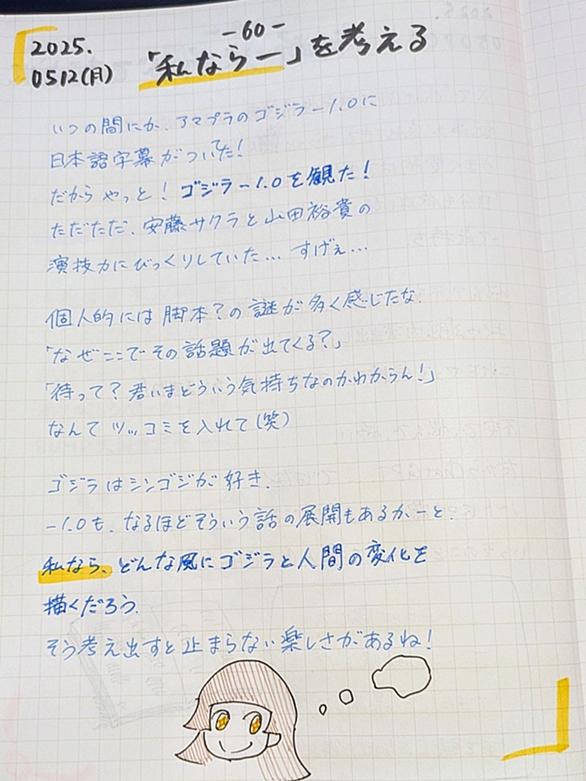 2025.
0512(月)
-60-
「私ならー」を考える
いつの間にか、アマプラのゴジラ-1.0に
日本語字幕がついてた!
だから やっと! ゴジラ-1.0を観た!
ただただ、安藤サクラと山田裕貴の
演技力にびっくりしていた… すげぇ…
個人的には 脚本?の謎が多く感じたな.
「なぜここでその話題が出てくる?」
「待って?君いまどういう気持ちなのかわからん!」
なんて ツッコミを入れて(笑)
ゴジラはシンゴジが好き.
-1.0も、なるほどそういう話の展開もあるかーと.
私なら、どんな風にゴジラと人間の変化を
描くだろう.
そう考え出すと止まらない楽しさがあるね!